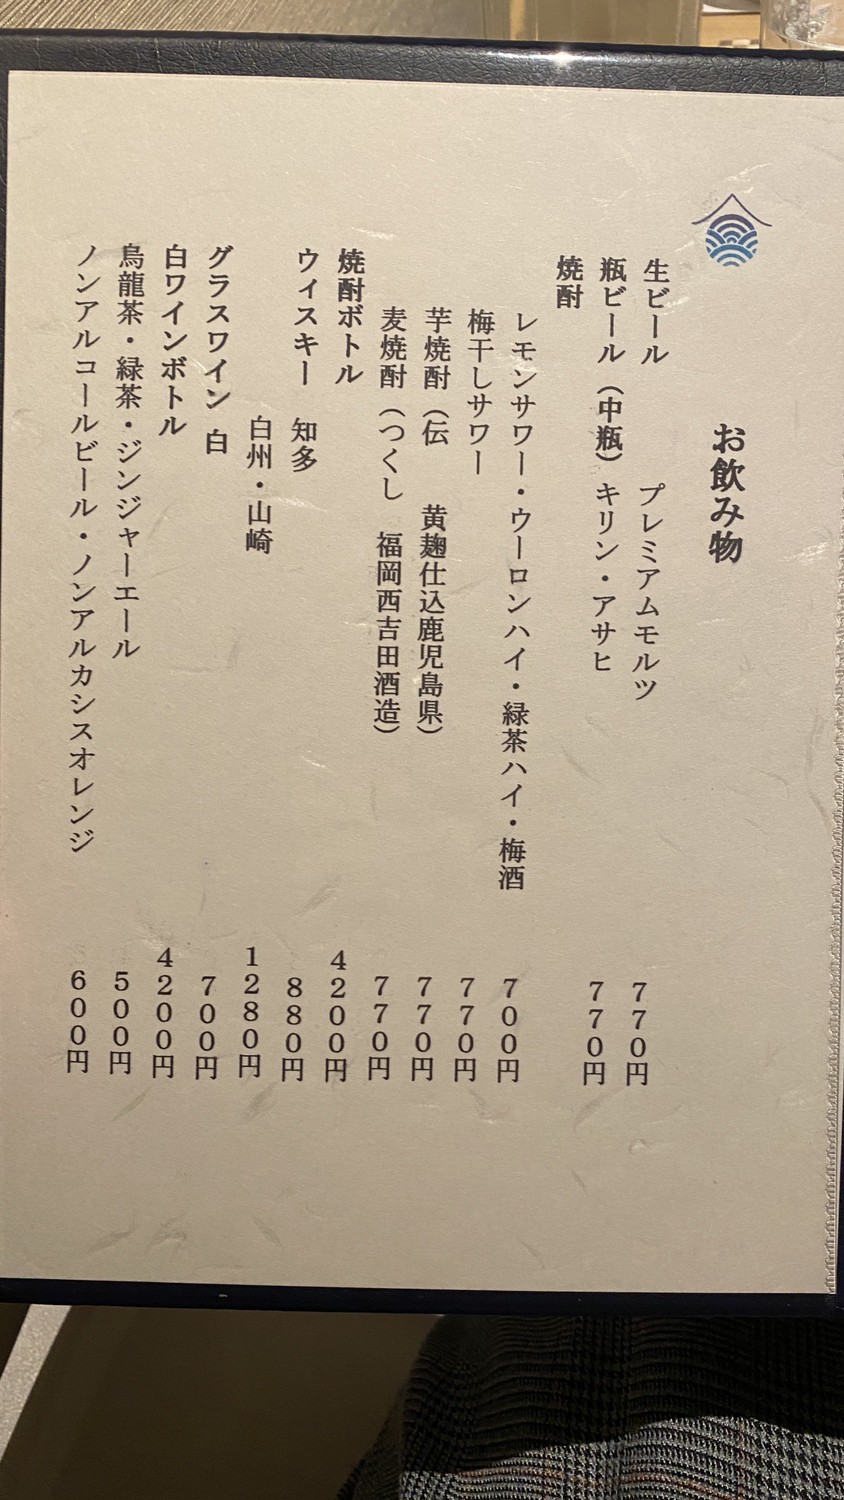 お飲み物
生ビール　プレミアムモルツ　７７０円
瓶ビール（中瓶）キリン・アサヒ　７７０円
焼酎
レモンサワー・ウーロンハイ・緑茶ハイ・梅酒　７００円
梅干しサワー　７７０円
芋焼酎（伝　黄麹仕込鹿児島県）　７７０円
麦焼酎（つくし　福岡西吉田酒造）　７７０円
焼酎ボトル　４２００円
ウィスキー　知多　８８０円
白州・山崎　１２８０円
グラスワイン　白　７００円
白ワインボトル　４２００円
烏龍茶・緑茶・ジンジャーエール　５００円
ノンアルコールビール・ノンアルカシスオレンジ　６００円